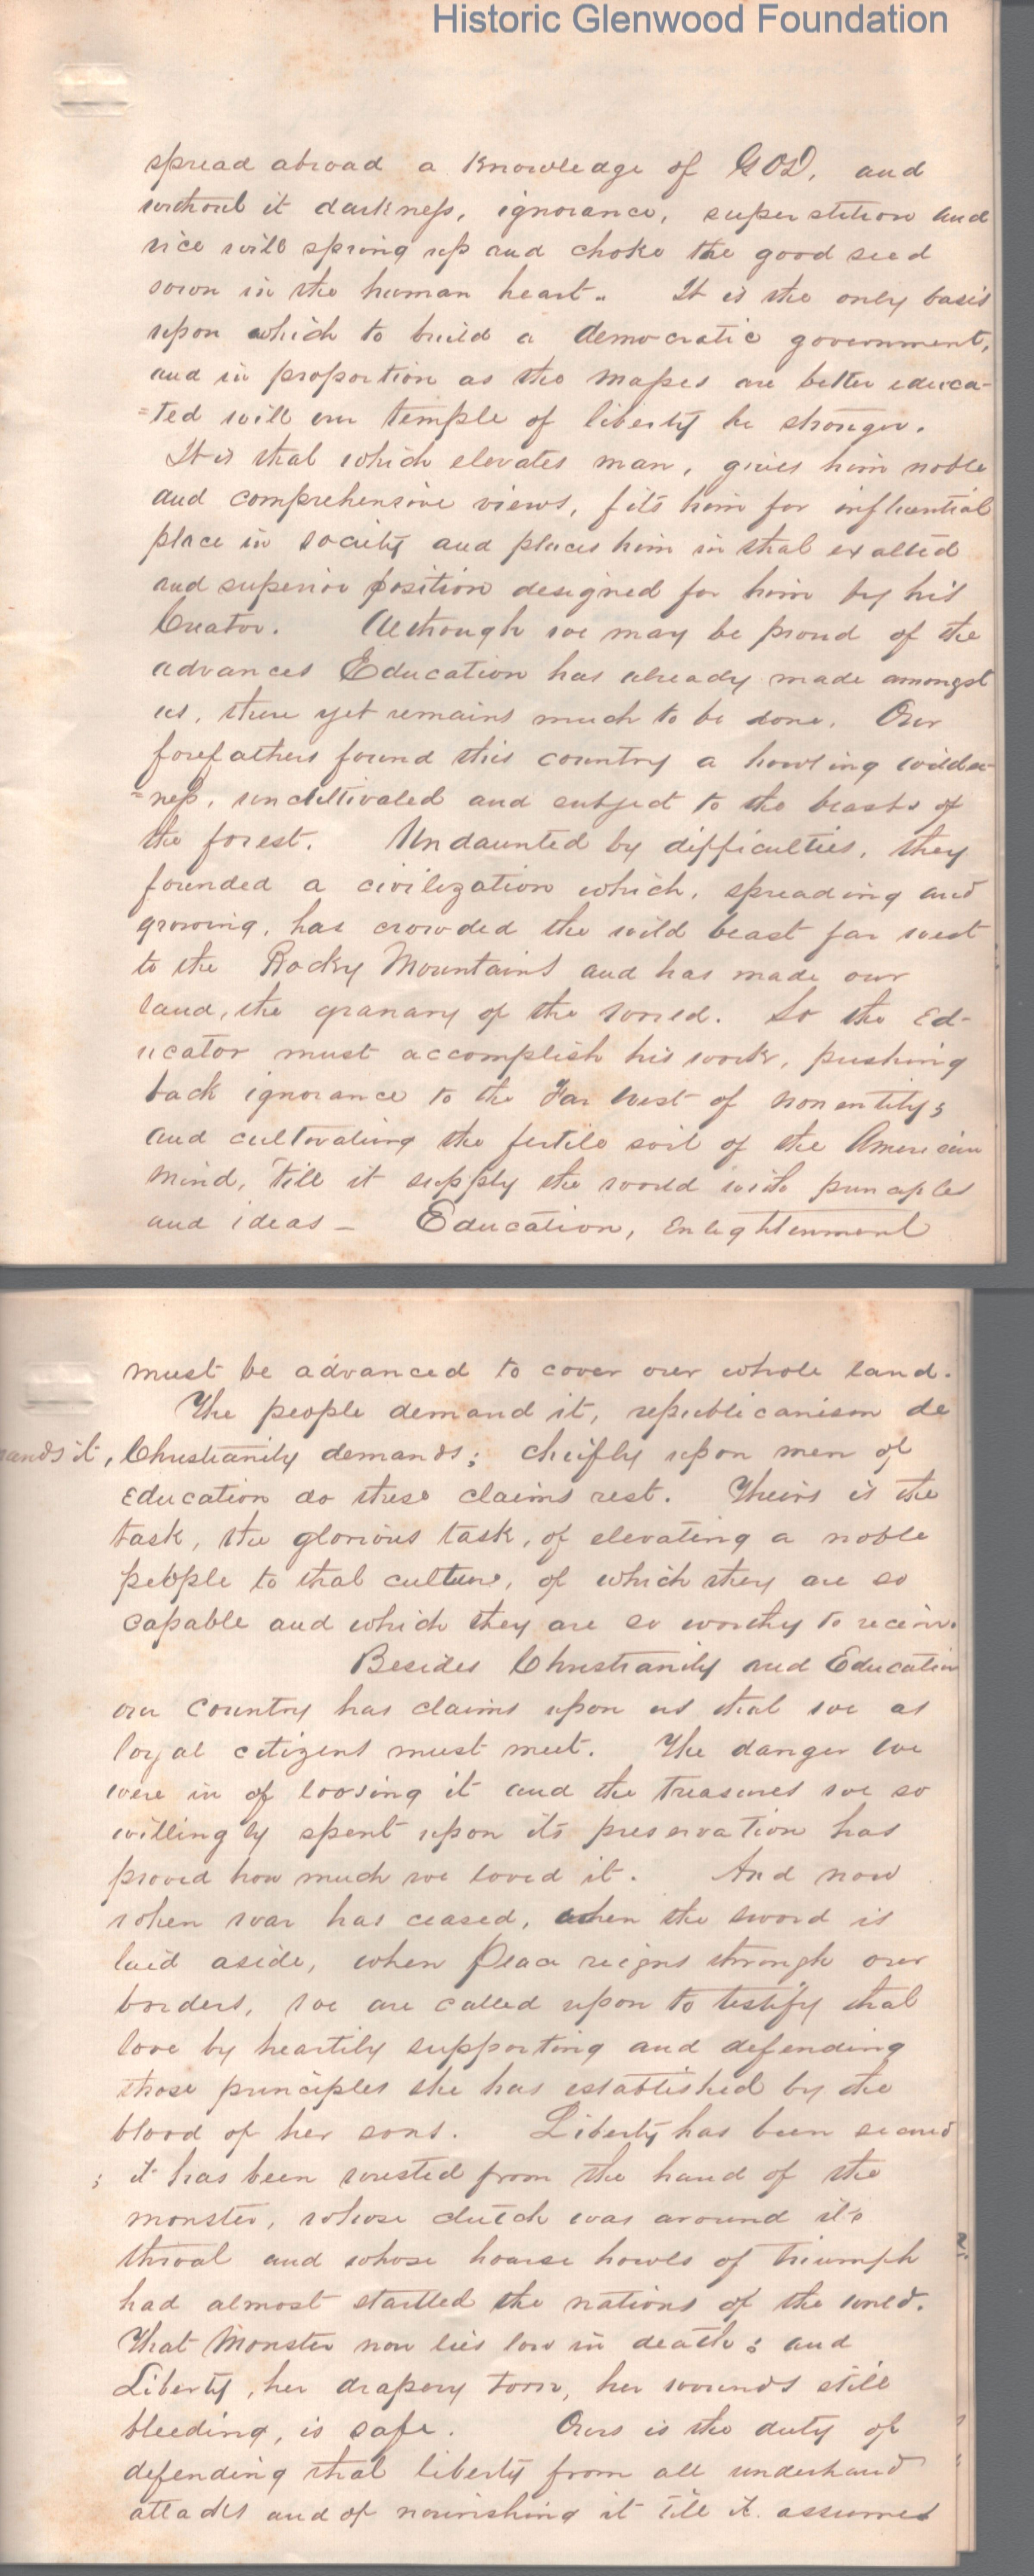 Historic Glenwood Foundation
spread abroad a knowledge of GOD, and
without it darkness, ignorance, superstition and
vice will spring up and choke the good seed
sown in the human heart. It is the only basis
upon which to build a democratic government,
and in proportion as the masses are better educa-
=ted will our temple of liberty be stronger.
It is that which elevates man, gives him noble
and comprehensive views, fits him for influential
place in society and places him in that exalted
and superior position designed for him by his
Creator. Although we may be proud of the
advances Education has already made amongst
us, there yet remains much to be done. Our
forefathers found this country a howling wilder-
=ness, uncultivated and subject to the beasts of
the forest. Undaunted by difficulties, they
founded a civilization which, spreading and
growing, has crowded the wild beast far west
to the Rocky Mountains and has made our
land, the granary of the world. So the Ed-
ucator must accomplish his work, pushing
back ignorance to the Far West of nonentity;
and cultivating the fertile soil of the American
mind, 'till it supply the world with principles
and ideas - Education, Enlightenment
must be advanced to cover our whole land.
The people demand it, republicanism de
mands it, Christianity demands; cheifly upon men of
Education do these claims rest. Theirs is the
task, the glorious task, of elevating a noble
people to that culture, of which they are so
capable and which they are so worthy to receive.
Besides Christianity and Education
our country has claims upon us that we as
loyal citizens must meet. The danger we
were in of loosing it and the treasures we so
willingly spent upon its preservation has
proved how much we loved it. And now
when war has ceased, when the sword is
laid aside, when Peace reigns through our
borders, we are called upon to testify that
love by heartily supporting and defending
those principles she has established by the
blood of her sons. Liberty has been secured
; it has been wrested from the hand of the
monster, whose clutch was around its
throat and whose hoarse howls of triumph
had almost startled the nations of the world.
That Monster now lies low in death; and
Liberty, her drapery torn, her wounds still
bleeding, is safe. Ours is the duty of
defending that liberty from all underhand
attacks and of nourishing it till it assumes